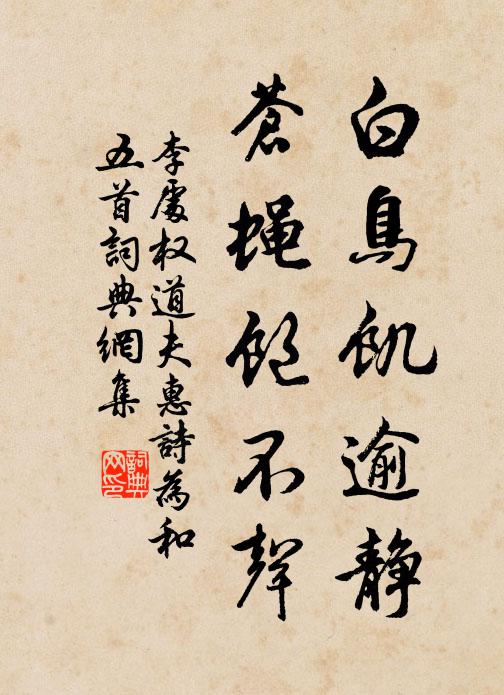 白鳥飢逾静
蒼蝇飽不聲
李處权道夫惠詩為和
五首詞典網集
詞典
网印